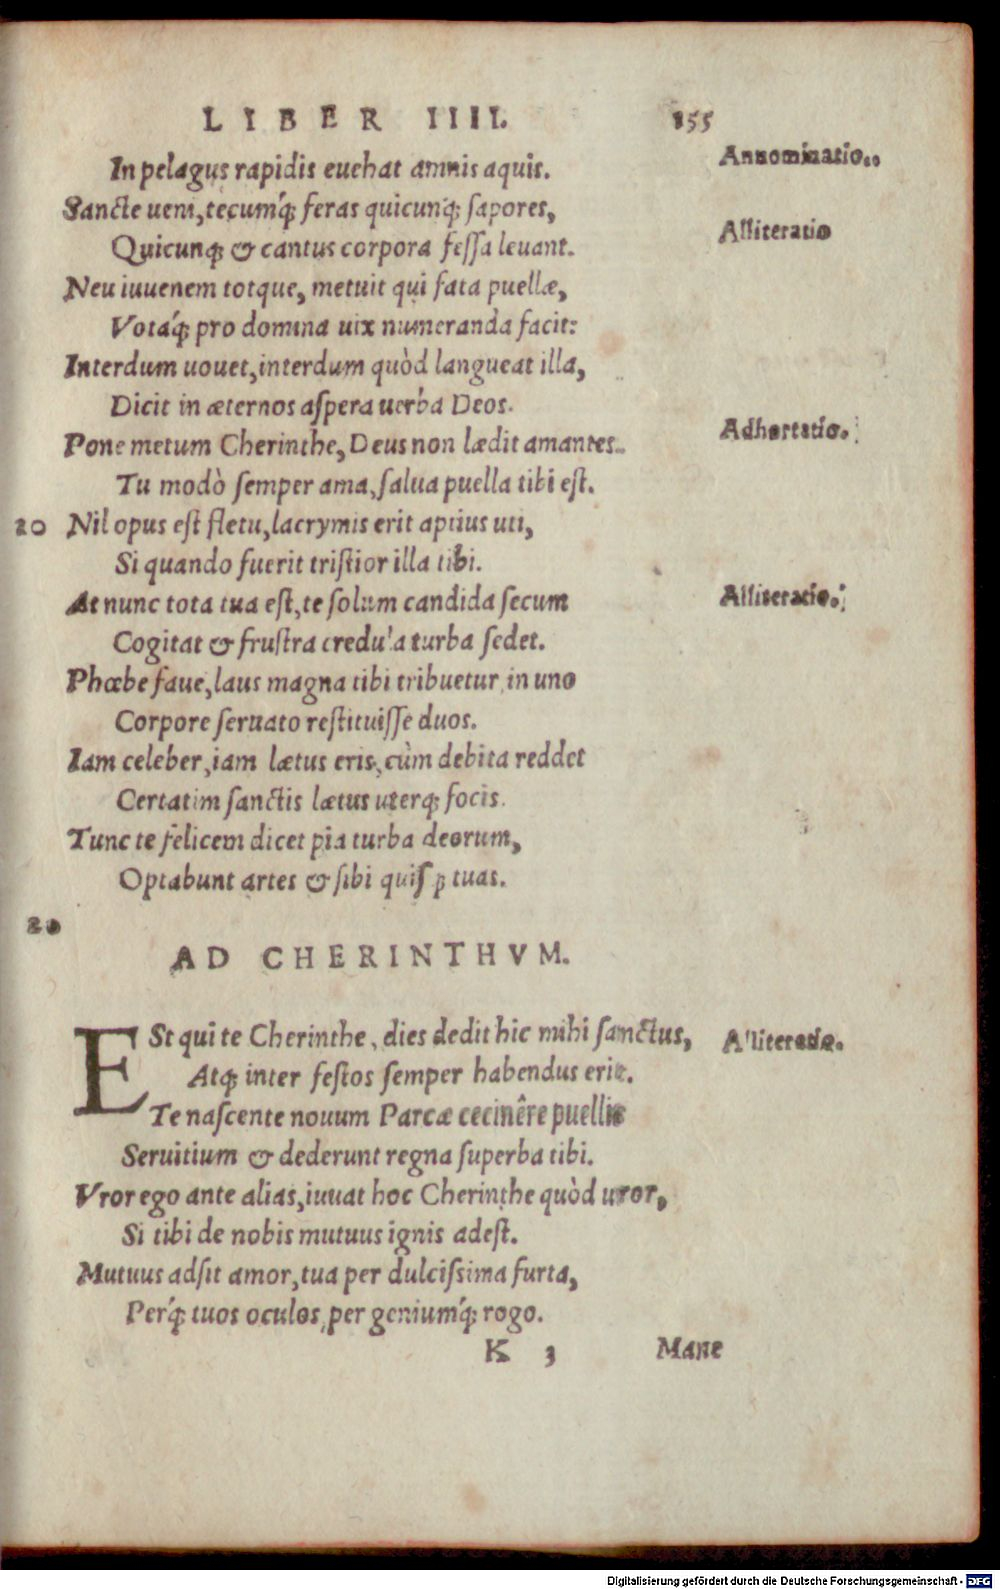 LIBER IIII. 155
In pelagus rapidis euehat amnis aquis. Annominatio..
Sancte ueni, tecumq́; feras quicunq; sapores,
Quicunq; & cantus corpora fessa leuant. Alliteratio
Neu iuuenem totque, metuit qui fata puellæ,
Votaq́; pro domina uix numeranda facit:
Interdum uouet, interdum quòd langueat illa,
Dicit in æternos aspera uerba Deos.
Pone metum Cherinthe, Deus non lædit amantes. Adhortatio.
Tu modò semper ama, salua puella tibi est.
20 Nil opus est fletu, lacrymis erit aptius uti,
Si quando fuerit tristior illa tibi.
At nunc tota tua est, te solum candida secum Alliteratio.
Cogitat & frustra credula turba sedet.
Phœbe faue, laus magna tibi tribuetur in uno
Corpore seruato restituisse duos.
Iam celeber, iam lætus eris, cùm debita reddet
Certatim sanctis lætus uterq; focis.
Tunc te felicem dicet pia turba deorum,
Optabunt artes & sibi quisꝗ tuas.
20
AD CHERINTHVM.
ESt qui te Cherinthe, dies dedit hic mihi sanctus, Alliteratio.
Atq; inter festos semper habendus erit.
Te nascente nouum Parcæ cecinêre puellis
Seruitium & dederunt regna superba tibi.
Vror ego ante alias, iuuat hoc Cherinthe quòd uror,
Si tibi de nobis mutuus ignis adest.
Mutuus adsit amor, tua per dulcissima furta,
Perq́; tuos oculos, per geniumq́; rogo.
K 3 Mane
Digitalisierung gefördert durch die Deutsche Forschungsgemeinschaft - DFG